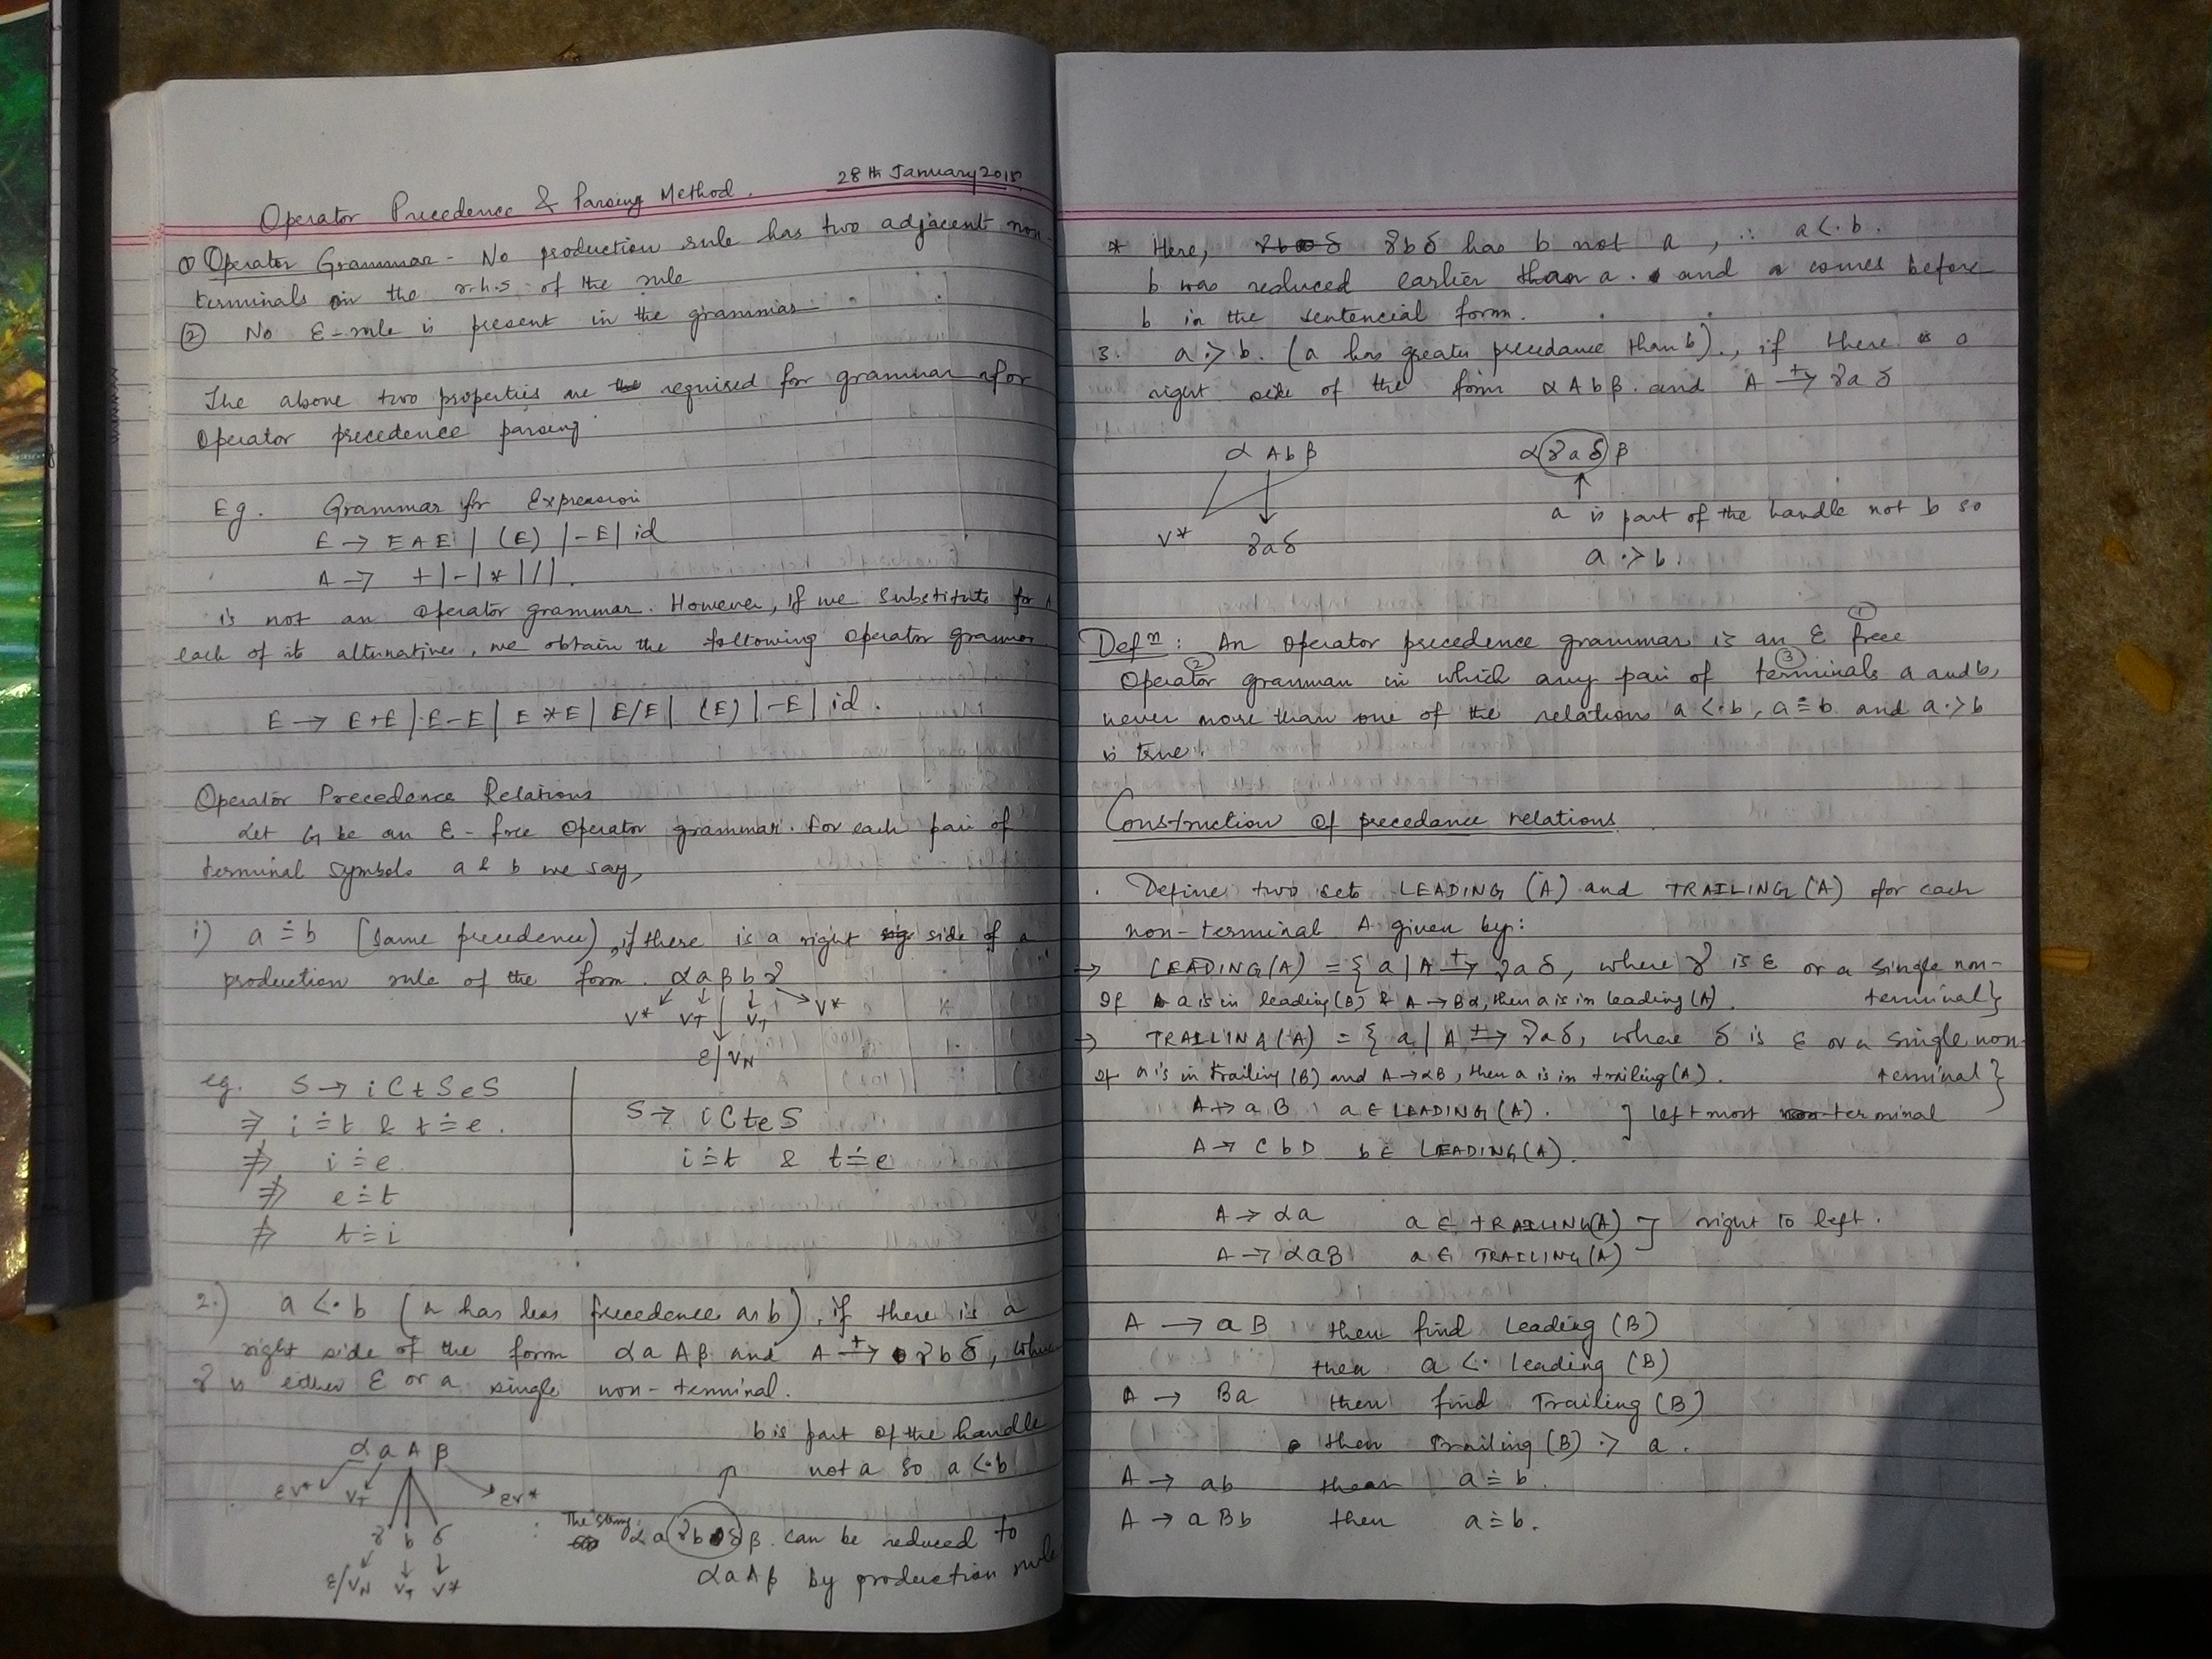 28th January 2015
Operator Precedence & Parsing Method.
① Operator Grammar - No production rule has two adjacent non-
terminals in the r.h.s. of the rule
② No ε-rule is present in the grammar
The above two properties are required for grammar for
Operator precedence parsing
Eg. Grammar for Expression
E → EAE | (E) | -E | id
A → + | - | * | / |.
is not an operator grammar. However, if we substitute for A
each of its alternatives, we obtain the following operator grammar
E → E+E | E-E | E*E | E/E | (E) | -E | id.
Operator Precedence Relations
Let G be an ε-free Operator grammar. For each pair of
terminal symbols a & b we say,
i) a ≐ b (Same precedence), if there is a right side of a
production rule of the form. α a β b γ
V* VT VT V*
ε/VN
eg. S → i C t S e S
⇒ i ≐ t & t ≐ e.
⇏ i ≐ e
⇏ e ≐ t
⇏ t ≐ i
S → i C t e S
i ≐ t & t ≐ e
2.) a <· b (a has less precedence as b), if there is a
right side of the form α a A β and A +→ γ b δ, where
γ is either ε or a single non-terminal.
b is part of the handle
not a so a <· b
α a A β
εV* VT εV*
γ b δ
ε/VN VT V*
The string α a (γ b δ) β can be reduced to
α a A β by production rule
* Here, γ b δ has b not a, ∴ a <· b.
b was reduced earlier than a. and a comes before
b in the sentencial form.
3. a ·> b. (a has greater precedance than b)., if there is a
right side of the form α A b β and A +→ γ a δ
α A b β
V* γ a δ
α (γ a δ) β
a is part of the handle not b so
a ·> b.
Defⁿ: An operator precedence grammar is an ε free ①
Operator ② grammar in which any pair of terminals ③ a and b,
never more than one of the relations a <· b, a ≐ b and a ·> b
is true.
Construction of precedance relations
. Define two sets LEADING (A) and TRAILING (A) for each
non-terminal A given by:
⇒ LEADING(A) = { a | A +→ γ a δ, where γ is ε or a single non-
terminal}
If a is in leading (B) & A → Bα, then a is in leading (A).
⇒ TRAILING (A) = { a | A +→ γ a δ, where δ is ε or a single non-
terminal }
If a is in trailing (B) and A → αB, then a is in trailing (A).
A → a B a ∈ LEADING (A). ] left most terminal
A → C b D b ∈ LEADING (A).
A → α a a ∈ TRAILING(A) ] right to left.
A → α a B a ∈ TRAILING (A)
A → a B then find Leading (B)
then a <· leading (B)
A → B a then find Trailing (B)
then Trailing (B) ·> a.
A → ab then a ≐ b.
A → a B b then a ≐ b.